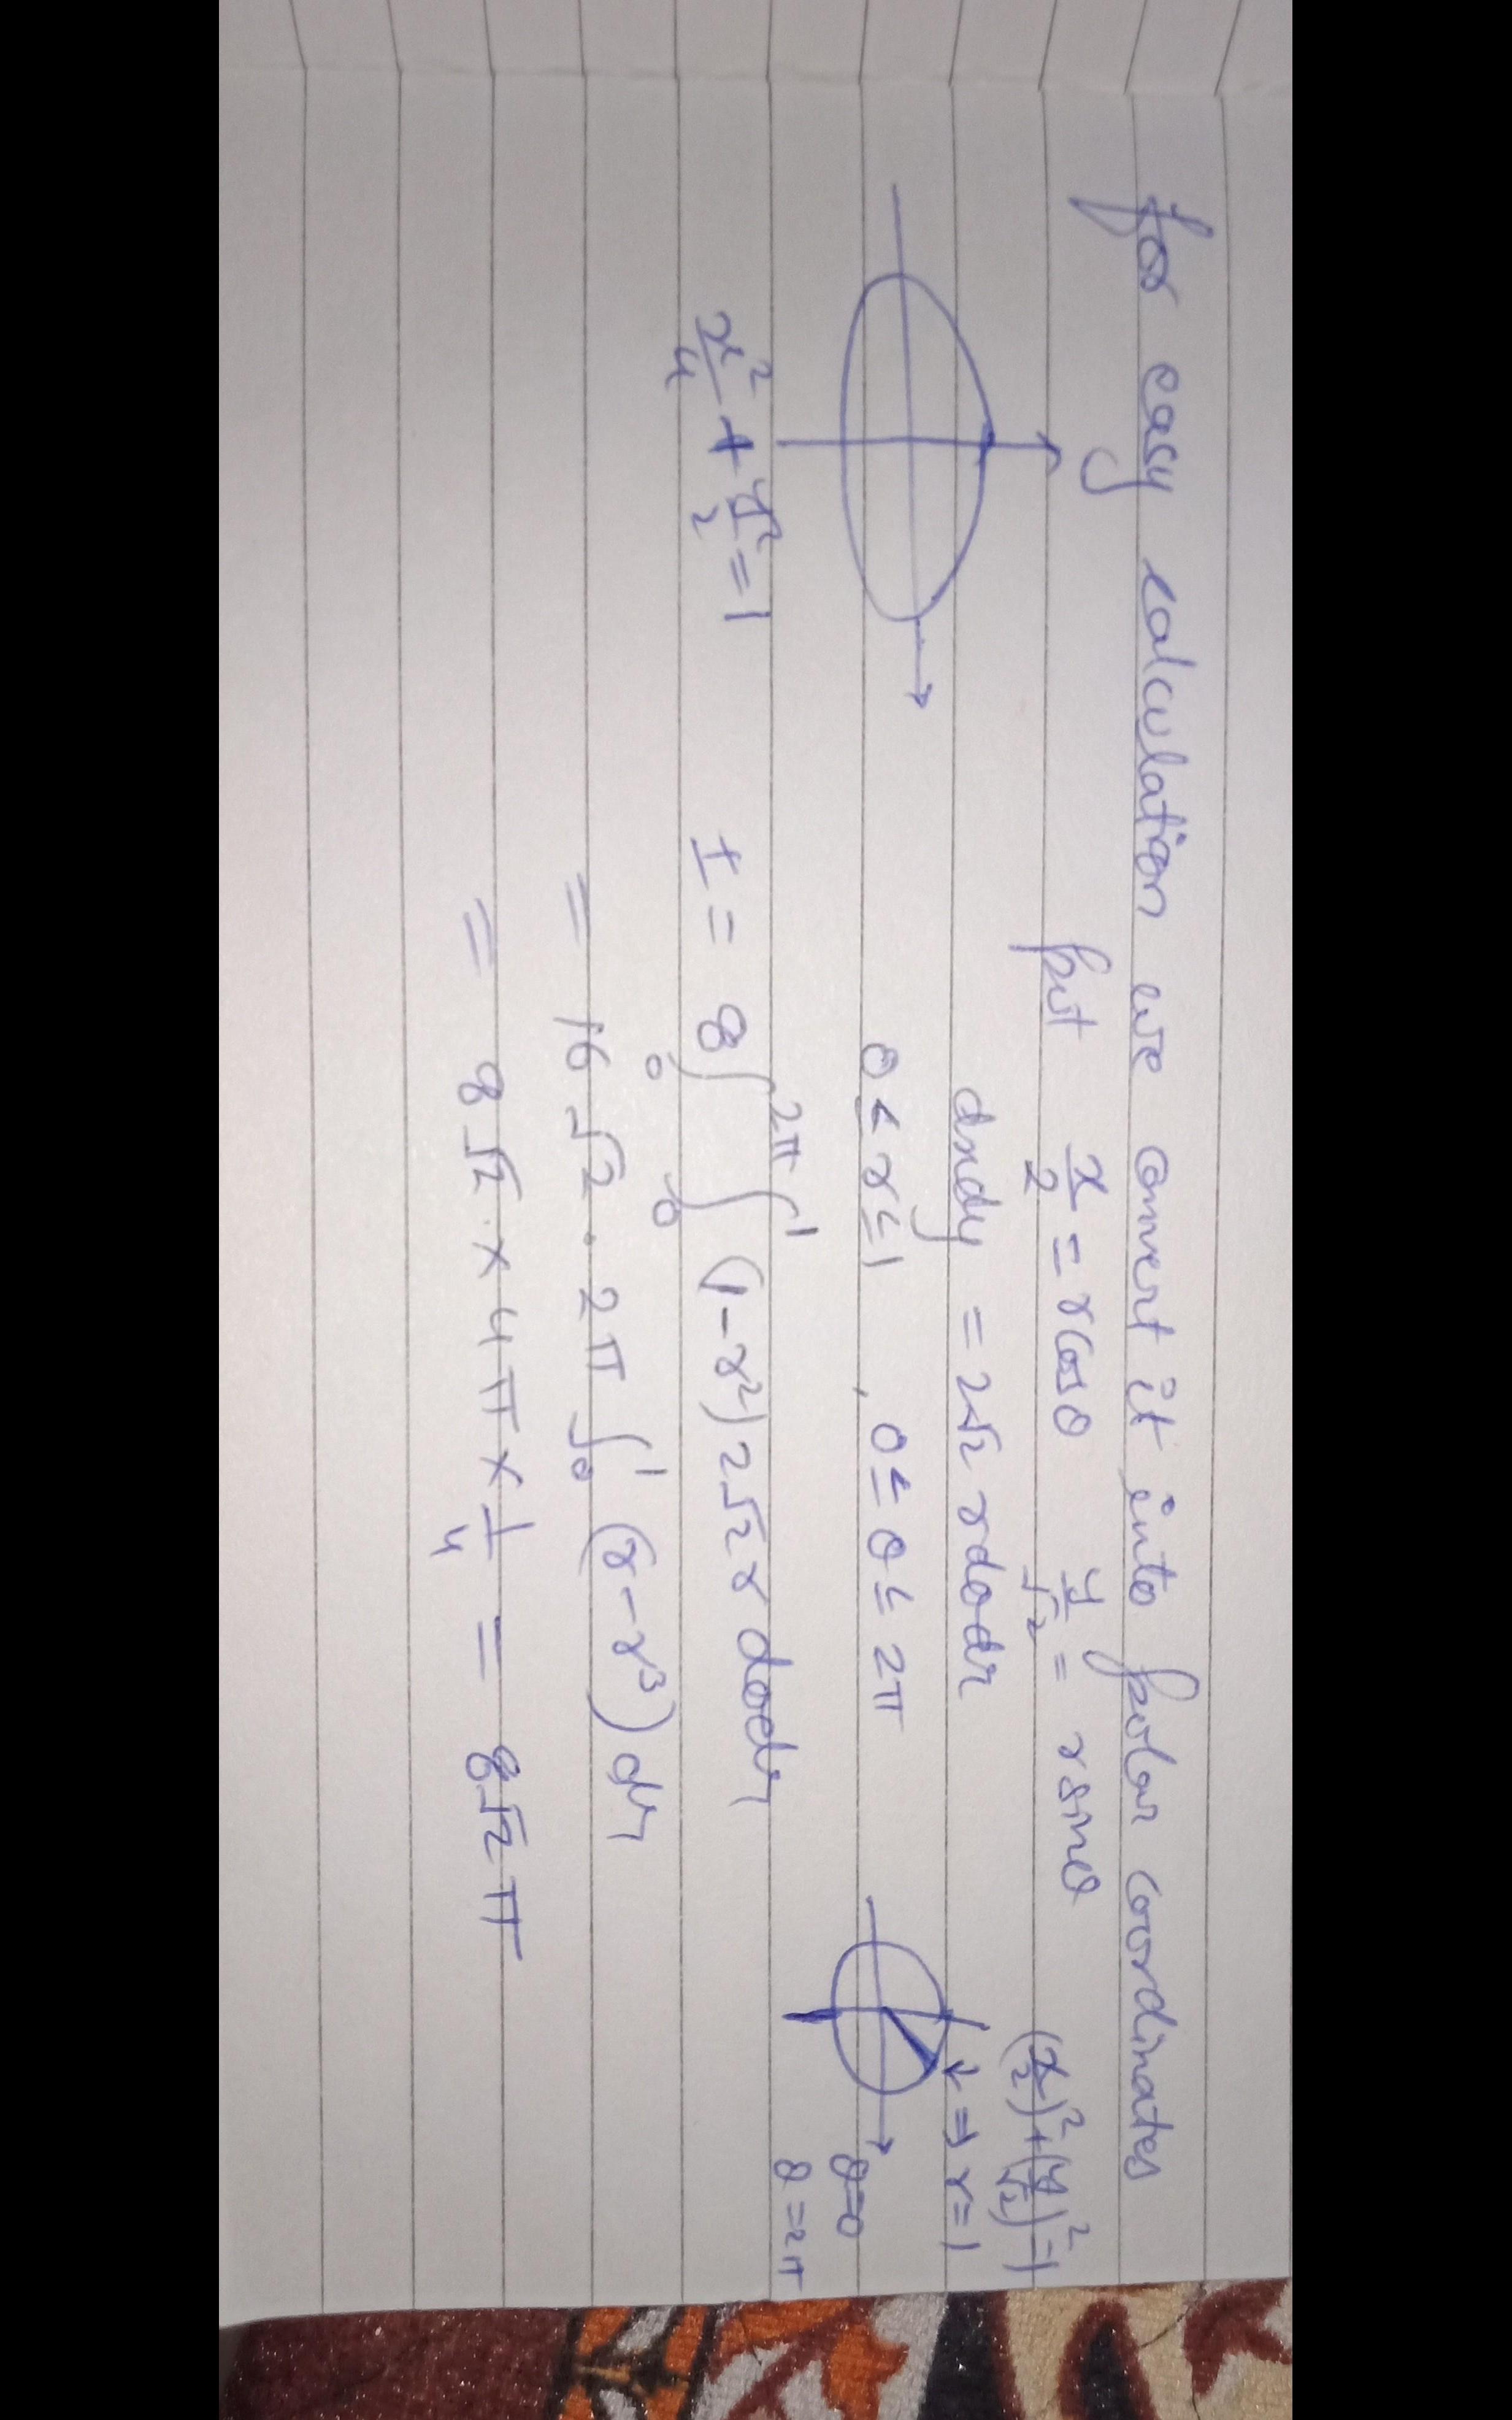 for easy calculation we convert it into polar coordinates
put x/2 = r cos θ y/√2 = r sin θ (x/2)² + (y/√2)² = 1
dxdy = 2√2 r dθ dr ⇒ r = 1
0 ≤ r ≤ 1 , 0 ≤ θ ≤ 2π θ = 0
θ = 2π
x²/4 + y²/2 = 1 I = 8 ∫₀^2π ∫₀^1 (1 - r²) 2√2 r dθ dr
= 16√2 · 2π ∫₀^1 (r - r³) dr
= 8√2 · × 4π × 1/4 = 8√2 π